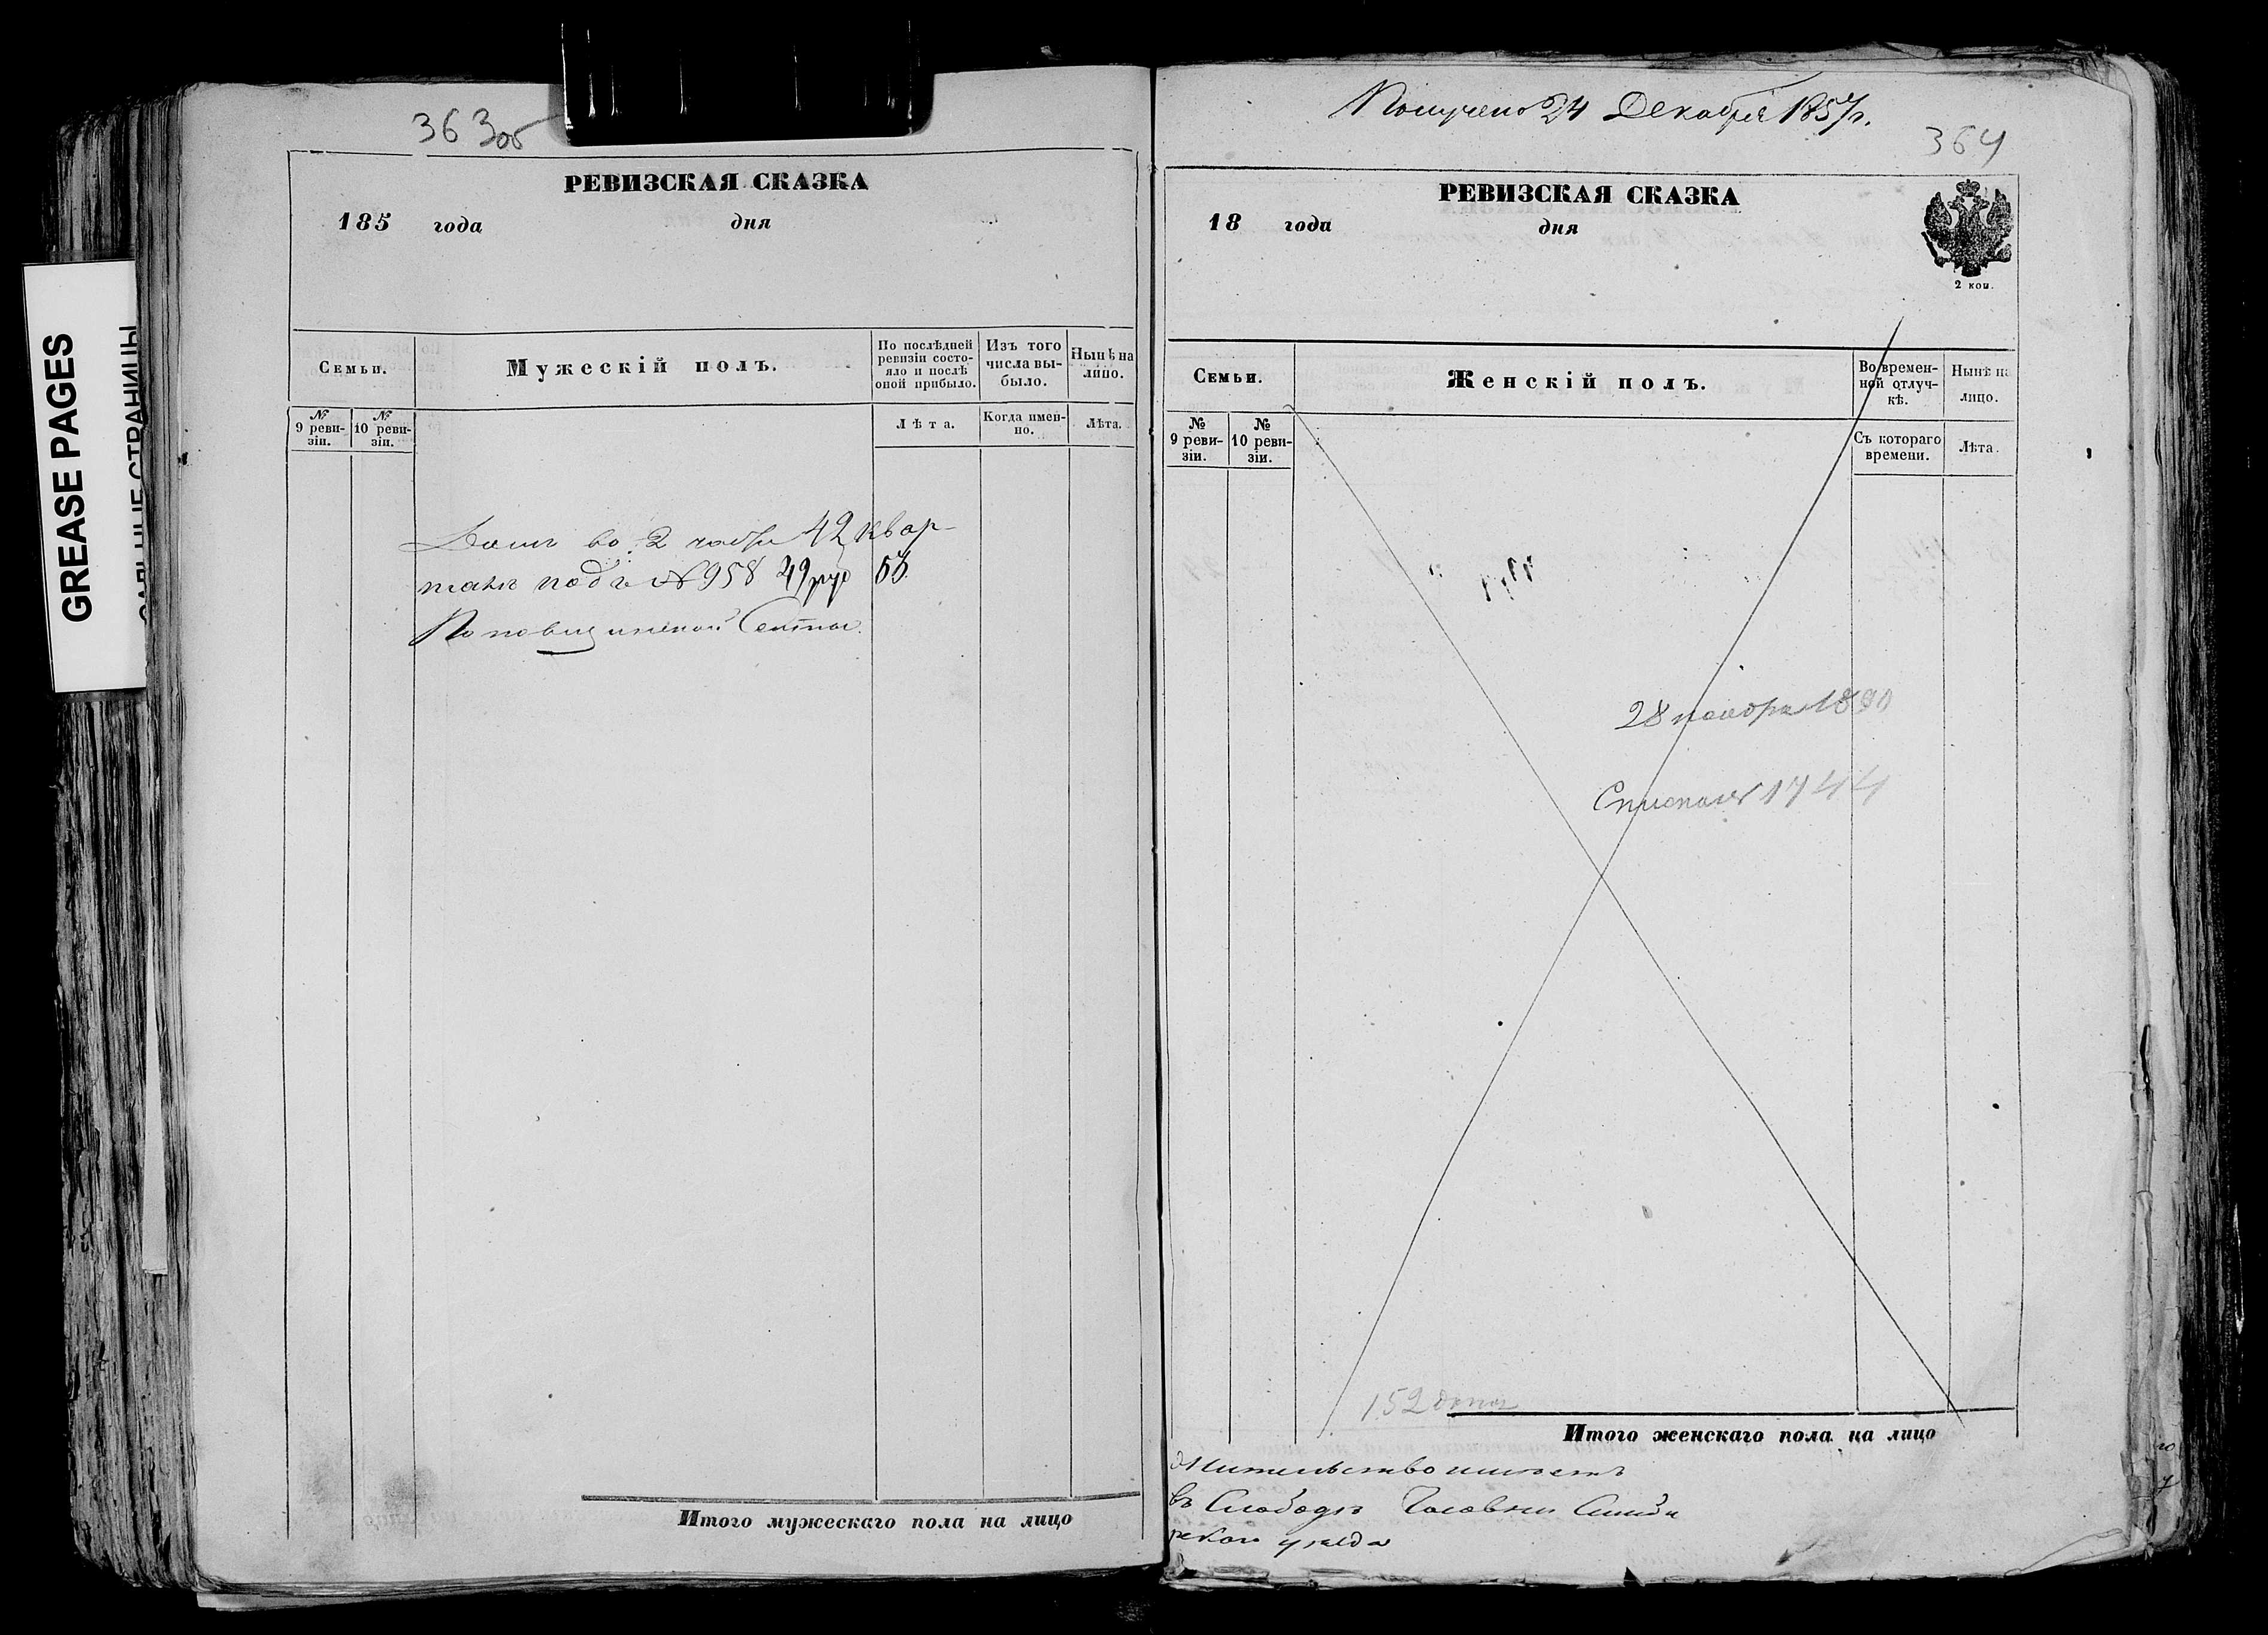 GREASE PAGES
363об
РЕВИЗСКАЯ СКАЗКА
185 года дня
Семьи.
Мужескій полъ.
По послѣдней ревизіи состо-
яло и послѣ оной прибыло.
Изъ того числа вы-
было.
Нынѣ на лицо.
№ 9 реви-
зіи.
№ 10 реви-
зіи.
Лѣта.
Когда имен-
но.
Лѣта.
Домъ во 2 части 42 квар-
талѣ подъ № 958 29 руб
Поповщинской Секты.
Итого мужескаго пола на лицо
Получено 24 Декабря 1857г.
364
РЕВИЗСКАЯ СКАЗКА
18 года дня
2 коп.
Семьи.
Женскій полъ.
Во времен-
ной отлуч-
кѣ.
Нынѣ на
лицо.
№
9 реви-
зіи.
№
10 реви-
зіи.
Съ котораго
времени.
Лѣта.
28 ноября 18
1744
152
Итого женскаго пола на лицо
Жительство имѣетъ
въ Слободѣ Часовни Симби
рскаго уѣзда